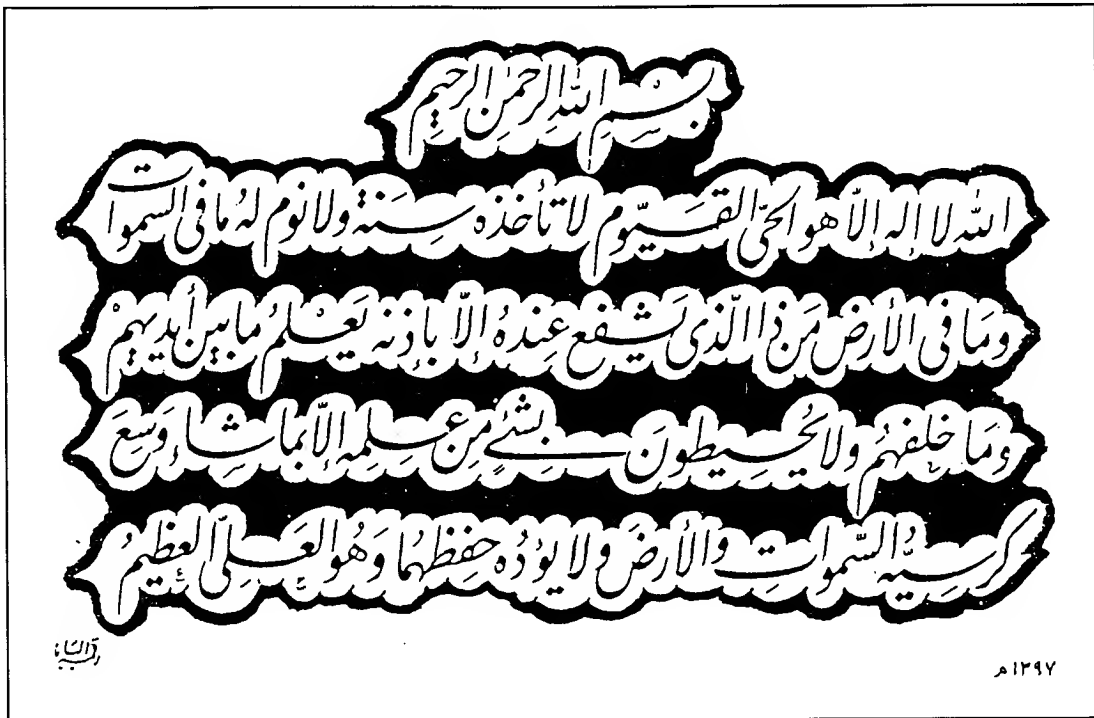 بسم الله الرحمن الرحيم
الله لا إله إلا هو الحي القيوم لا تأخذه سنة ولا نوم له ما في السموات
وما في الأرض من ذا الذي يشفع عنده إلا بإذنه يعلم ما بين أيديهم
وما خلفهم ولا يحيطون بشئ من علمه إلا بما شاء وسع
كرسيه السموات والأرض ولا يؤده حفظهما وهو العلي العظيم
١٣٩٧م